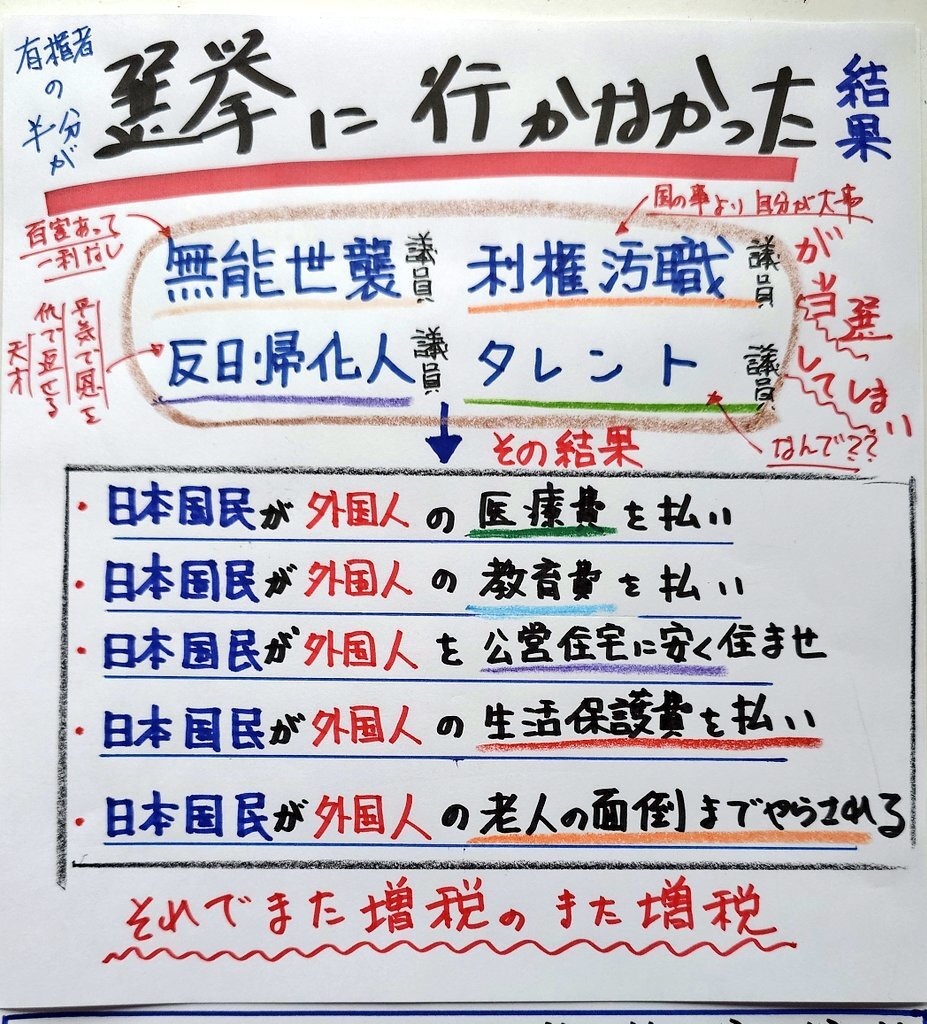 有権者
の
半分が
選挙に行かなかった
結果
百害あって
一利なし
無能世襲議員
国の事より自分が大事
利権汚職議員
平気で恩を
仇で返せる
天才
反日帰化人議員
タレント議員
なんで??
が当選してしまい
その結果
・日本国民が外国人の医療費を払い
・日本国民が外国人の教育費を払い
・日本国民が外国人を公営住宅に安く住ませ
・日本国民が外国人の生活保護費を払い
・日本国民が外国人の老人の面倒までやらされる
それでまた増税のまた増税